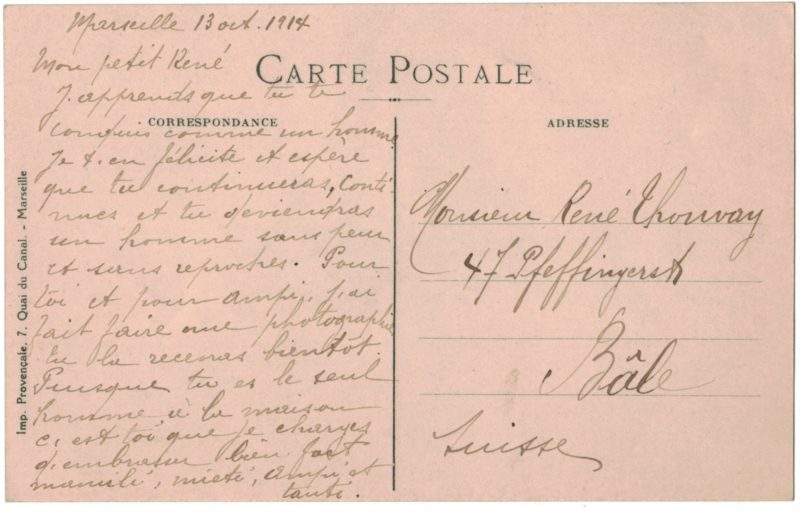 Marseille 13 oct. 1914
Mon petit René
CARTE POSTALE
J'apprends que tu te
CORRESPONDANCE
conduis comme un homme
Je t'en félicite et espère
que tu continueras, Conti-
nues et tu deviendras
un homme sans peur
et sans reproches. Pour
toi et pour ampi, j'ai
fait faire une photographie
tu la recevras bientôt.
Puisque tu es le seul
homme à la maison
c'est toi que je charge
d'embrasser bien fort
mamili, mieti, ampi et
tanti.
Imp. Provençale, 7, Quai du Canal. - Marseille
ADRESSE
Monsieur René Thourvay
47 Pfeffingerst
Bâle
Suisse